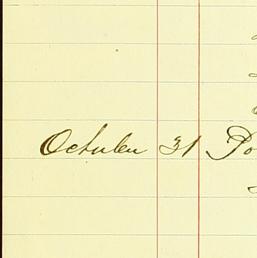 October 31 Po